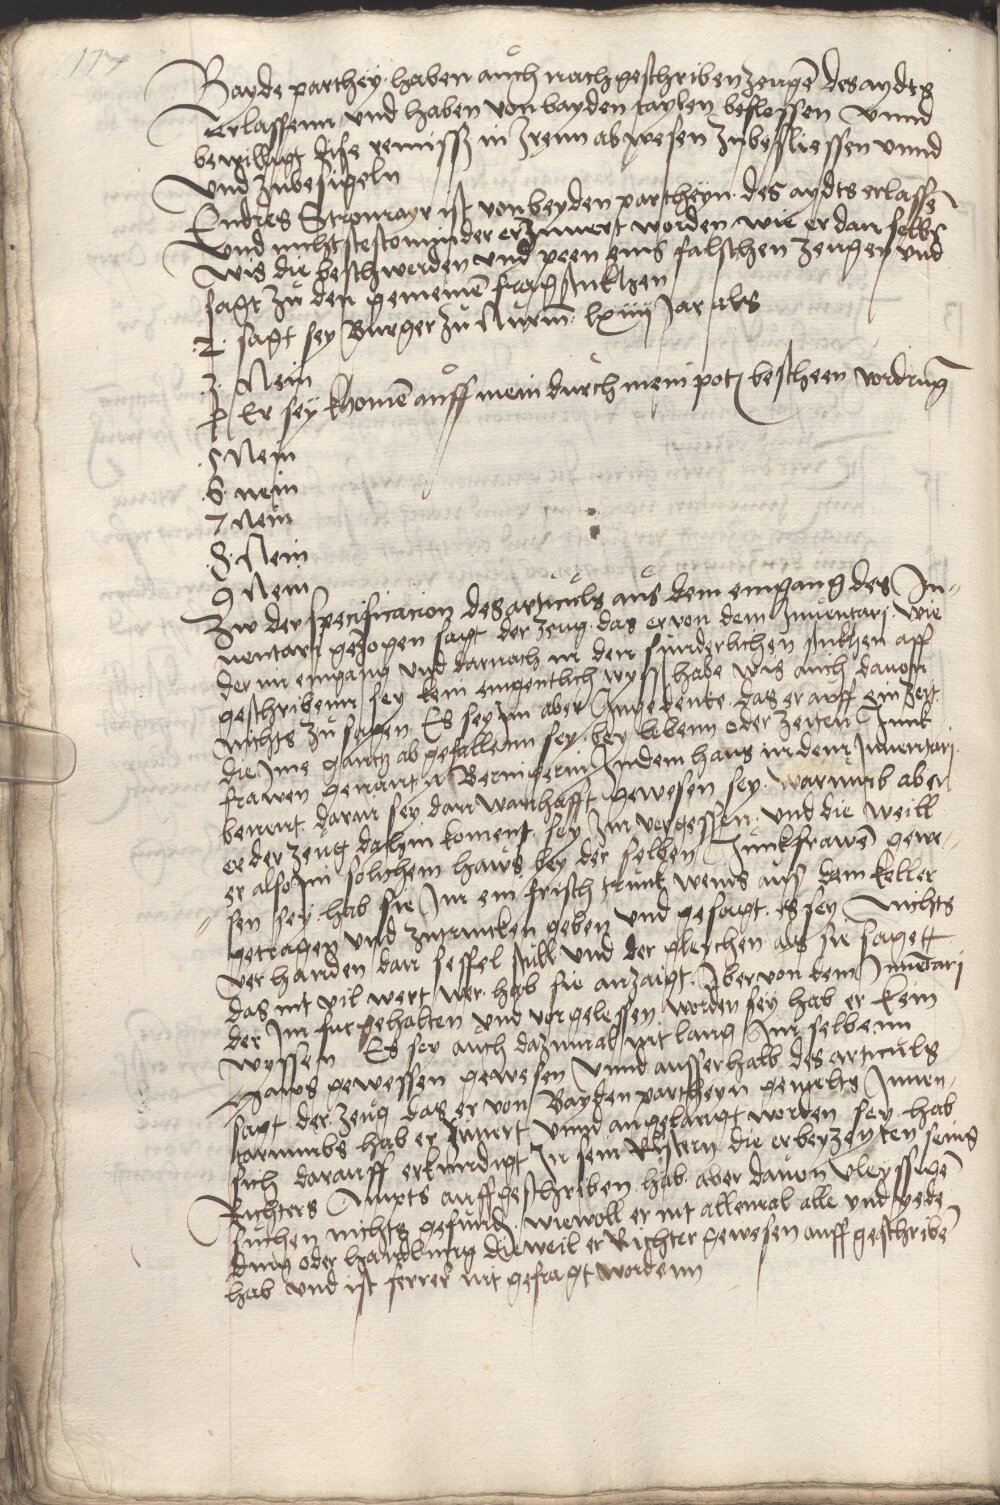 177
Bayde parthey haben auch nachgeschriben zeugē des aydts
Erlassenn und haben von bayden taylen beslossen Unnd
bewilligt dise remissz in Irenn abwesen zubesliessen unnd
Und zubesigeln
Endres Stromayr ist von beyden partheyn des aydts erlassē
Und nichtsdestominder erInnert worden wie er dan selbs
wis die beschwerden und peen eins falschen zeugen und
sagt zu den gemeinē fragstukhen
.2. sagt sey Burger zu Nurm̄. lxiiij Jar alts
3. Nein
4 Er sey khomē auff mein durch mein potn bescheen vordrug
.5 Nein
.6. nein
7 Nein
.8. Nein
9 Nein
Zw der specificacion des articuls aus dem eingang des In-
nentari gezogen sagt der zeug das er von dem Inuentari wie
der im eingang und darnach in den sunderlichen stukhen aff
geschribenn sey kein eingentlich wyss habe wis auch dauon
nichts zu sagen Es sey im aber Inn gedenke das er auff ein zeyt
die Ime gantz ab gefallenn sey bey lebenn oder zeiten Junk
frawen genant N Beringerin In dem haus in dem Inuentari
benent daran sey dan wanhafft gewesen sey warumb aber
er der zeug dahin koment sey Im vergessen und die weill
er also im solichem haws bey der selben Junkfrawē gewe-
sen sey hab sie Im ein frisch trunk weins aus dem keller
getragen und zutrincken geben und gesagt es sey nichts
verhanden dan sessel stull und der gleychen als sie sagett
das nit vil wert wer hab sie anzaigt Aber von dem Inuētari
der Im furgehalten und vorgelessen worden sey hab er kein
wyssen Es sey auch dazumal nit lang Im selbenn
haws gewessen gewesen Unnd ausserhalb des articuls
sagt der zeug das er von Bayden partheyn gemelts Inuen-
tariumbs hab er Innert unnd angelangt worden sey hab
sich darauff erkundigt In sein Rystern die er bey zeyten seins
Richters Ampts auffgeschriben hab aber dauon vleyssigē
suchen nichts gefund wiewoll er nit allemal alle und yede
ding oder handlung dieweil er Richter gewesen auff geschribē
hab und ist ferrer nit gefragt wordenn